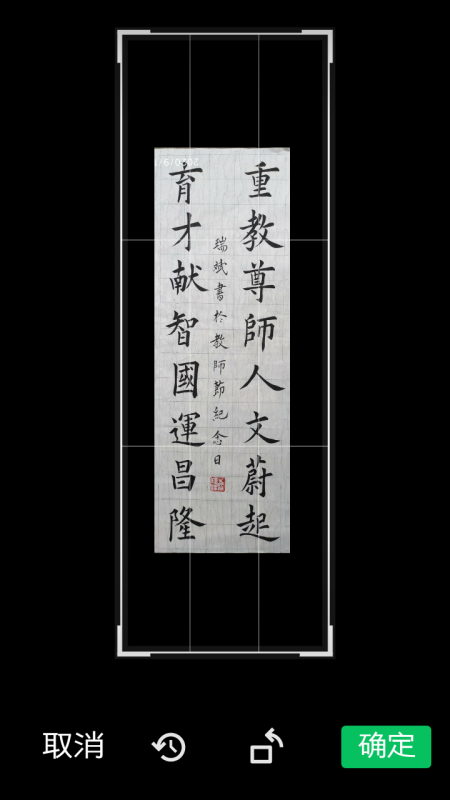 重教尊師人文蔚起
瑞斌書於教師節紀念日
育才献智國運昌隆
取消
确定